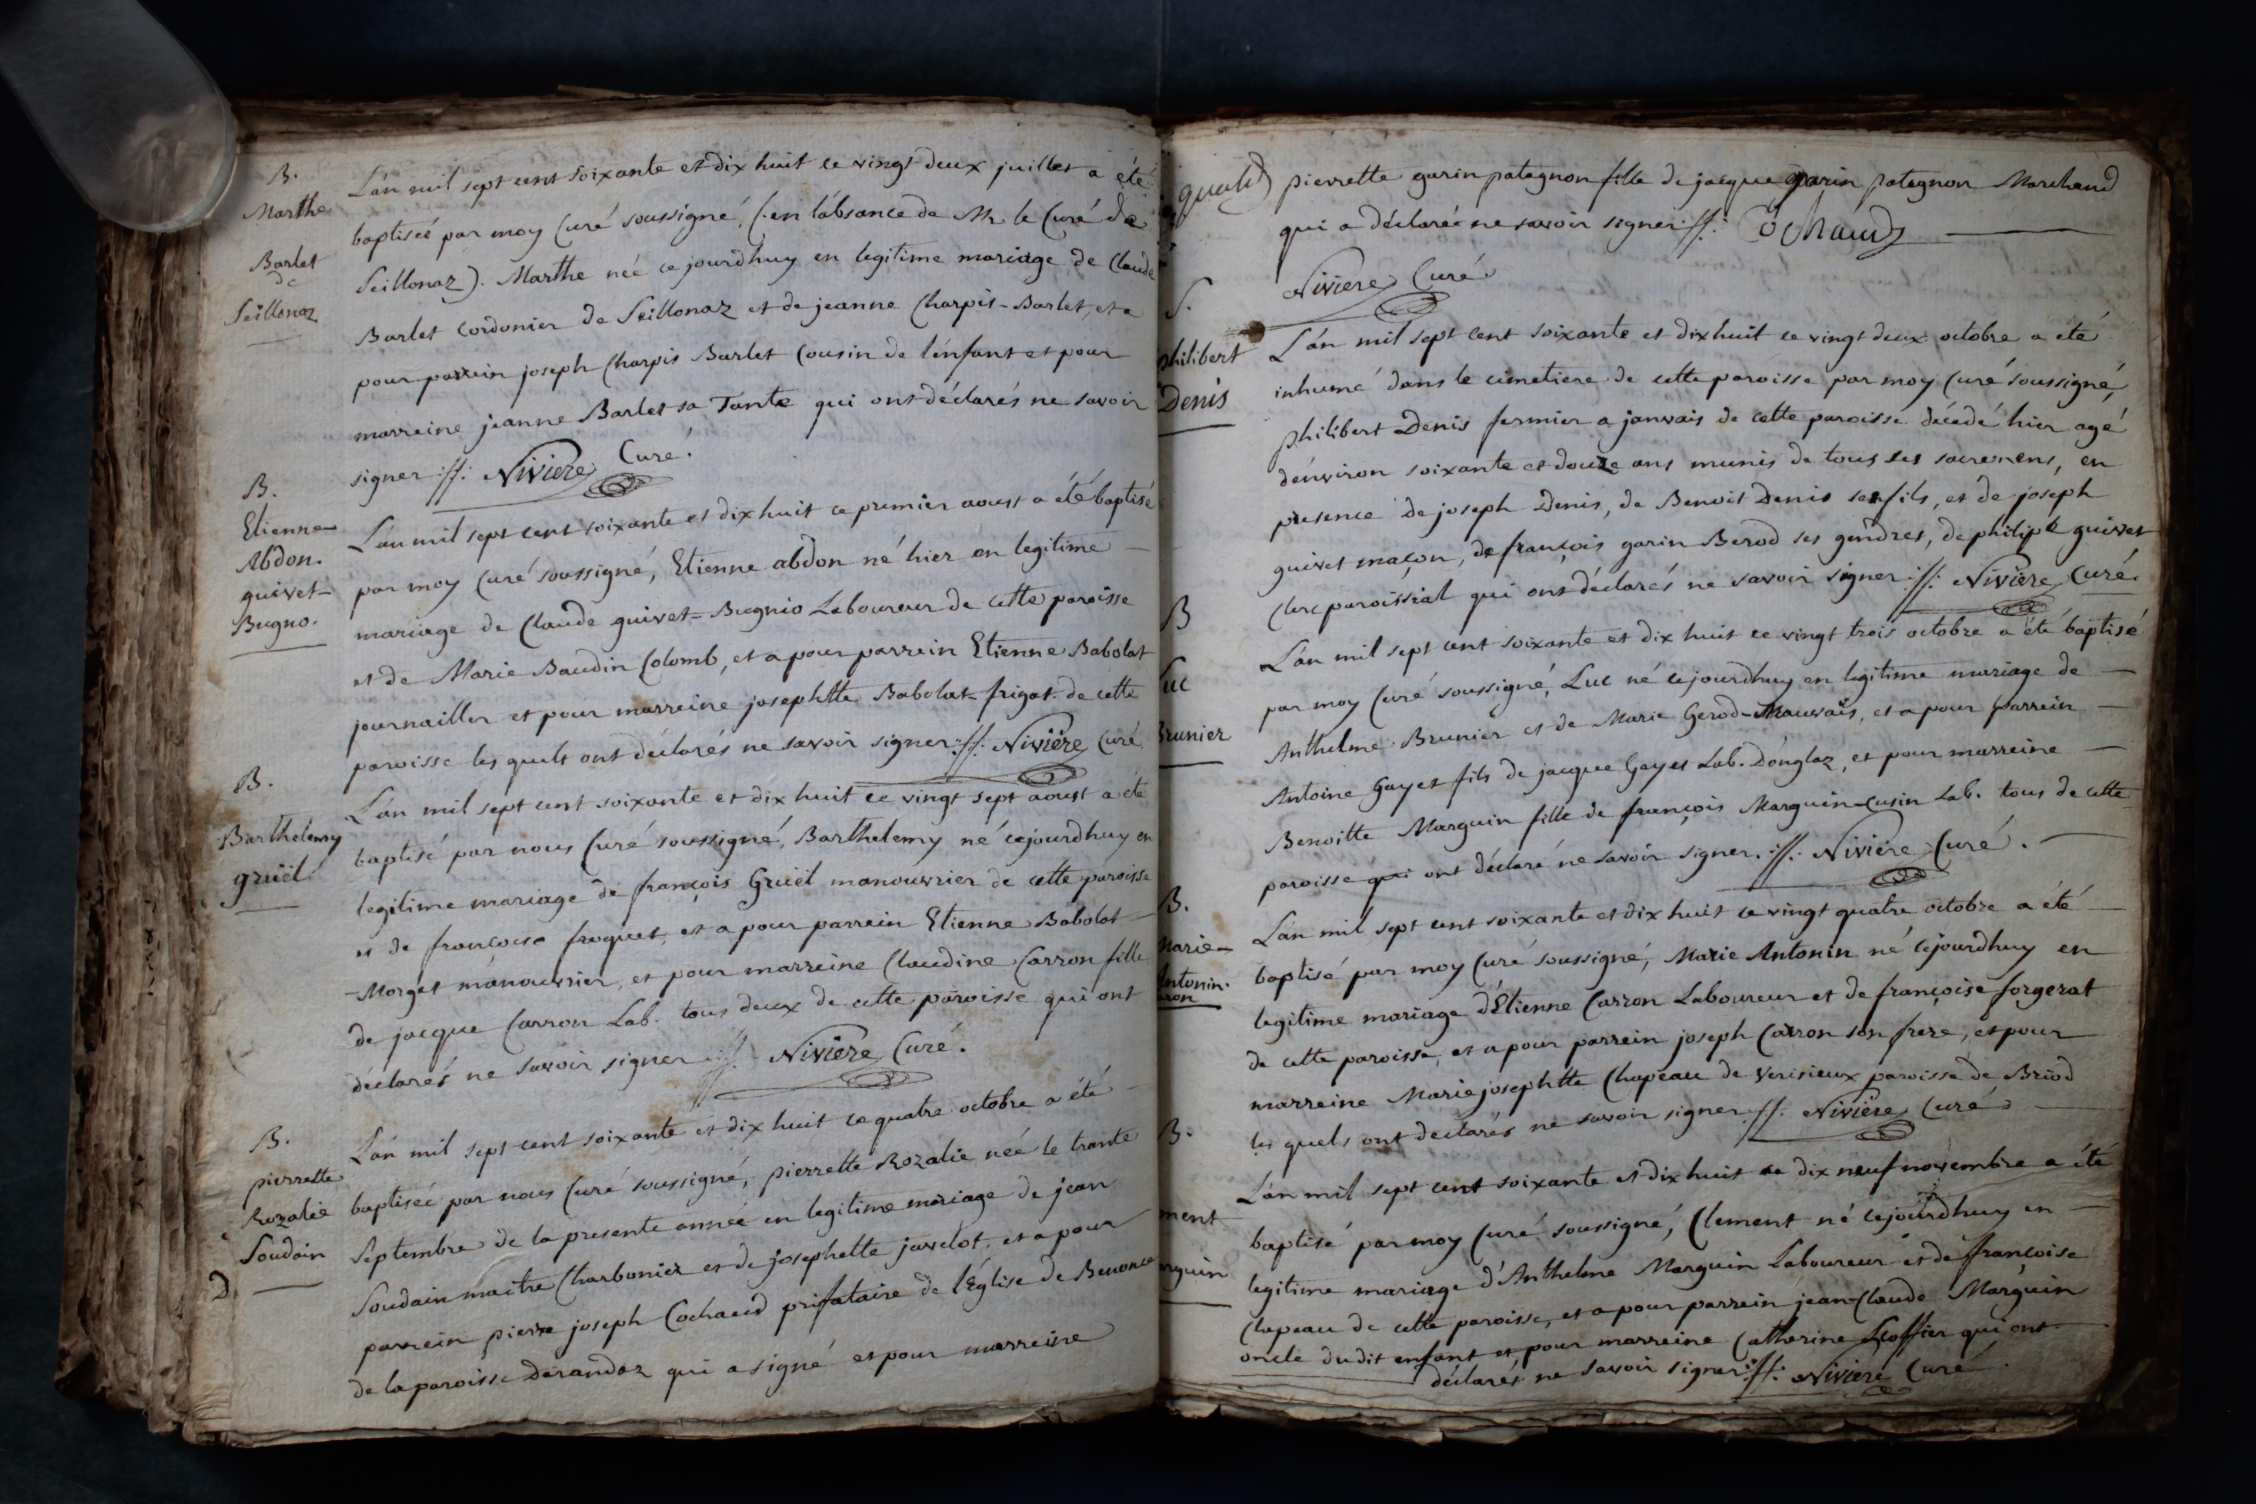 B.
Marthe
Barlet
de
Seillonaz
L'an mil sept cent soixante et dix huit ce vingt deux juillet a été
baptiseé par moy Curé soussigné, (en l'absance de Mr le Curé de
Seillonaz). Marthe neé ce jourdhuy en legitime mariage de Claude
Barlet Cordonier de Seillonaz et de jeanne Charpis-Barlet, et a
pour parrein joseph Charpis Barlet Cousin de l'enfant et pour
marreine jeanne Barlet sa Tante qui ont déclarés ne savoir
signer ://: Niviere Curé.
B.
Etienne
Abdon.
guivet=
Bugno.
L'an mil sept cent soixante et dix huit ce premier aoust a été baptisé
par moy Curé soussigné, Etienne abdon né hier en legitime
mariage de Claude guivet=Bugnio Laboureur de cette paroisse
et de Marie Baudin Colomb, et a pour parrein Etienne Babolat
journaillier et pour marreine josephtte Babolat-frigat de cette
paroisse les quels ont déclarés ne savoir signer ://: Niviere Curé
B.
Barthelemy
gruël
L'an mil sept cent soixante et dix huit ce vingt sept aoust a été
baptisé par nous Curé soussigné, Barthelemy né cejourdhuy en
legitime mariage de françois Gruël manouvrier de cette paroisse
et de françoise froquet, et a pour parrein Etienne Babolat
-Morget manouvrier, et pour marreine Claudine Carron fille
de jacque Carron Lab. tous deux de cette paroisse qui ont
déclarés ne savoir signer ://: Niviere Curé.
B.
pierrette
Rozalie
Soudain
D
L'an mil sept cent soixante et dix huit ce quatre octobre a été
baptiseé par nous Curé soussigné, pierrette Rozalie neé le trante
Septembre de la presente anneé en legitime mariage de jean
Soudain maitre Charbonier et de josephette javelot, et a pour
parrein pierre joseph Cochaud prifataire de l'Eglise de Benonce
de la paroisse Dérandaz qui a signé et pour marreine
pierrette garin patagnon fille de jacque garin patagnon Marchand
qui a déclareé ne savoir signer ://: Cochaud
Niviere Curé
S.
philibert
Denis
L'an mil sept cent soixante et dixhuit ce vingt deux octobre a été
inhumé dans le cimetiere de cette paroisse par moy Curé soussigné,
philibert Denis fermier a janvais de cette paroisse décedé hier agé
d'environ soixante et douze ans munis de tous les sacremens, en
presence de joseph Denis, de Benoit Denis ses fils, et de joseph
guivet maçon, de françois garin Berod ses gendres, de philipe guivet
Clerc paroissial qui ont déclarés ne savoir signer ://: Niviere Curé
B
Luc
Brunier
L'an mil sept cent soixante et dix huit ce vingt trois octobre a été baptisé
par moy Curé soussigné, Luc né cejourdhuy en legitime mariage de
Anthelme Brunier et de Marie Gerod-Mauvais, et a pour parrein
Antoine Gayet fils de jacque Gayet Lab. Dónglaz, et pour marreine
Benoitte Marguin fille de françois Marguin-Cusin Lab. tous de cette
paroisse qui ont déclaré ne savoir signer. ://: Niviere Curé.
B.
Marie-
Antonin.
L'an mil sept cent soixante et dix huit ce vingt quatre octobre a été
baptisé par moy Curé soussigné, Marie Antonin né cejourdhuy en
legitime mariage d'Etienne Carron Laboureur et de françoise forgerat
de cette paroisse, et a pour parrein joseph Carron son frere, et pour
marreine Marie josephtte Chapeau de Verisieux paroisse de Briod
les quels ont déclarés ne savoir signer ://: Niviere Curé
B.
ment
rguin
L'an mil sept cent soixante et dix huit ce dix neuf novembre a été
baptisé par moy Curé soussigné, Clement né cejourdhuy en
legitime mariage d'Anthelme Marguin Laboureur et de françoise
Chapeau de cette paroisse, et a pour parrein jean-Claude Marguin
oncle dudit enfant et pour marreine Catherine Scoffier qui ont
déclarés ne savoir signer ://: Niviere Curé